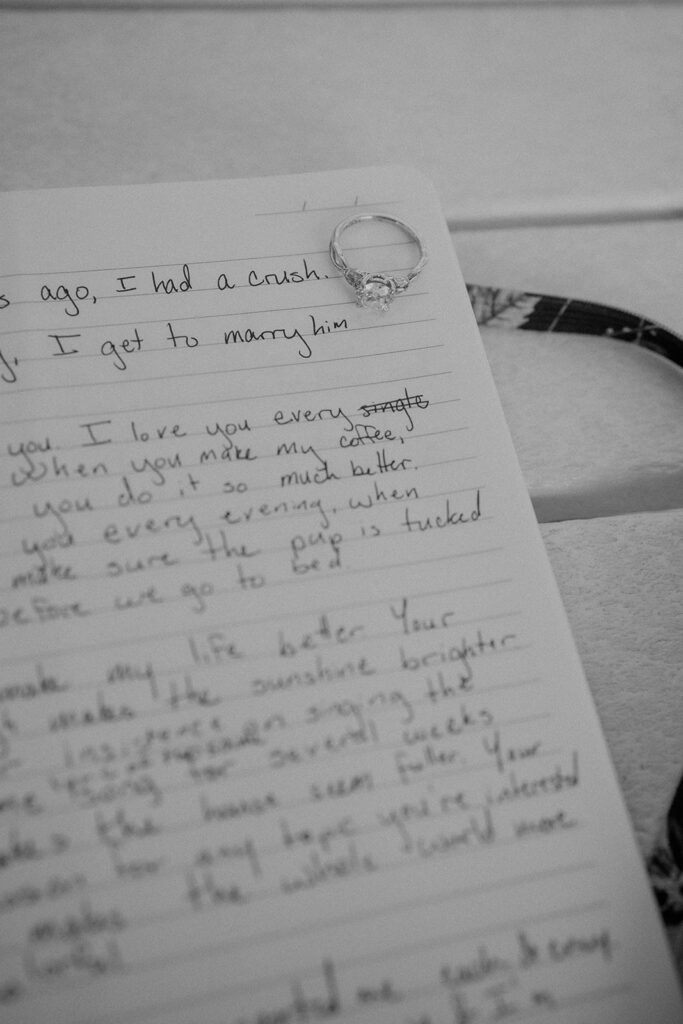 s ago, I had a crush.
y, I get to marry him
you. I love you every single
When you make my coffee,
you do it so much better.
you every evening, when
make sure the pup is tucked
before we go to bed.
make my life better Your
makes the sunshine brighter
insistence on singing the
song for several weeks
the house seem fuller. Your
for any topic you're interested
makes the whole world more
me
I'm